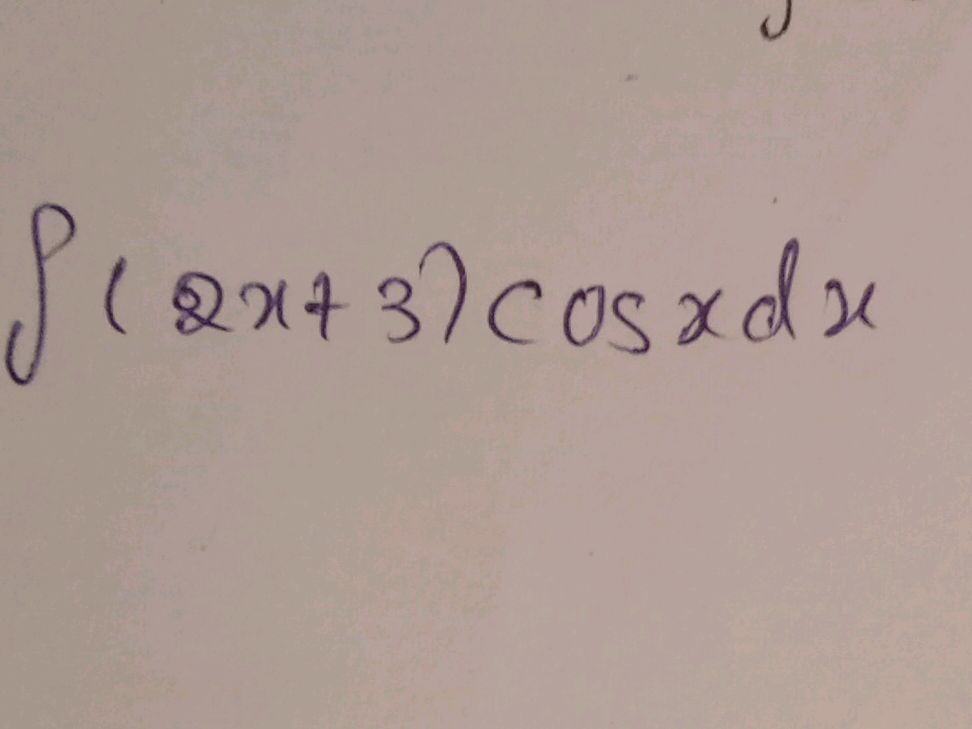 ∫(2x+3)cosxdx